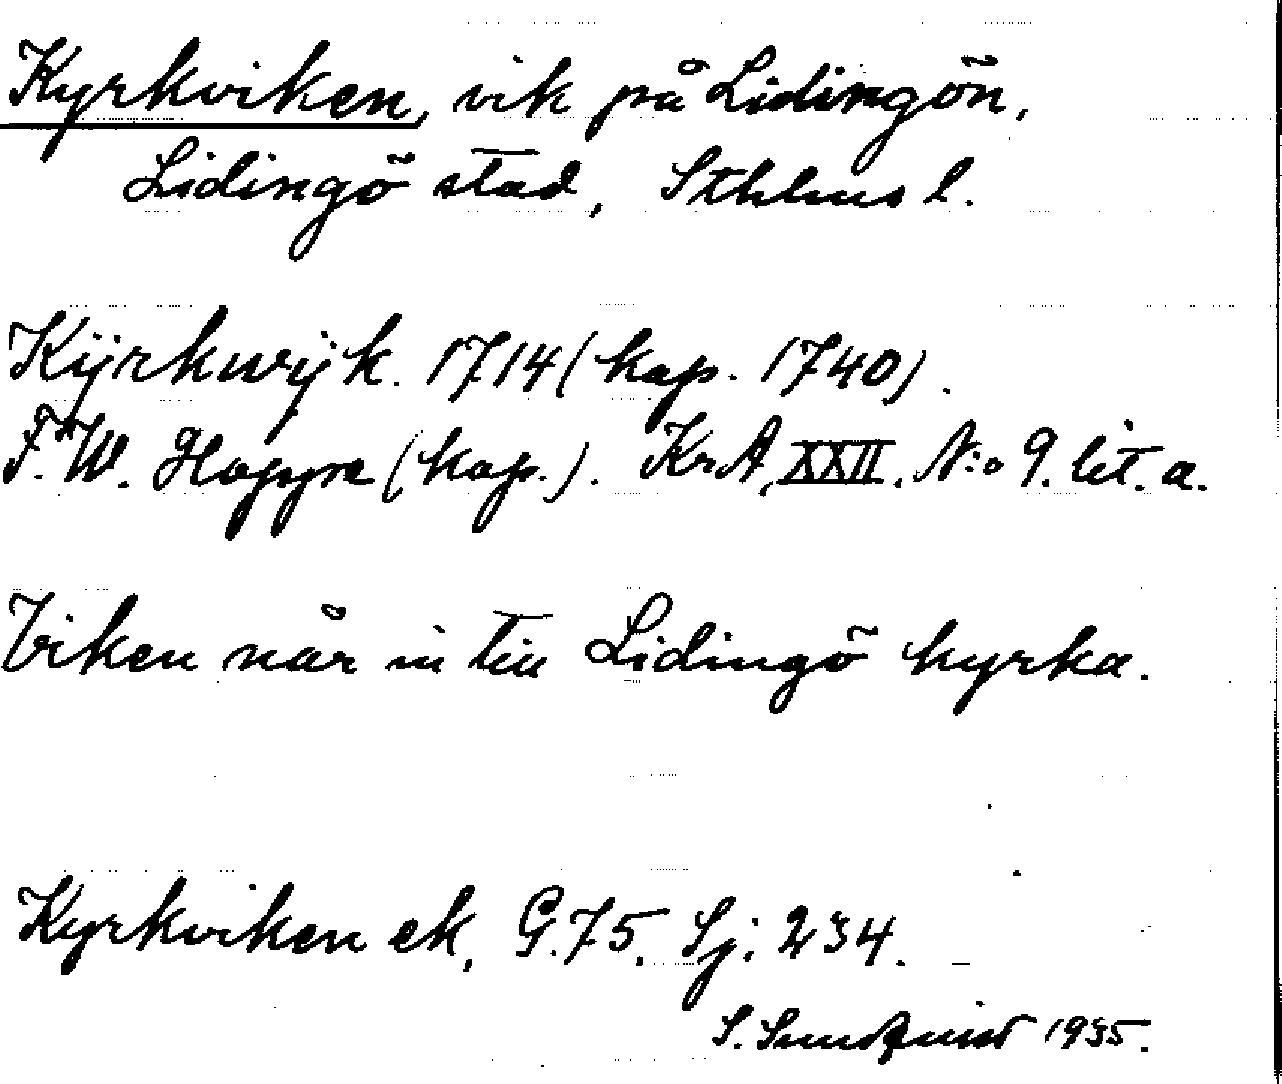 Kyrkviken, vik på Lidingön,
Lidingö stad, Sthlms l.
Kÿrkwÿk. 1714 (kop. 1740).
F. W. Hoppe (kop.). KrA, XXII. N:o 9. lit. a.
Viken når in till Lidingö kyrka.
Kyrkviken ek, G. 75. Sj: 234.
S. Sundquist 1935.